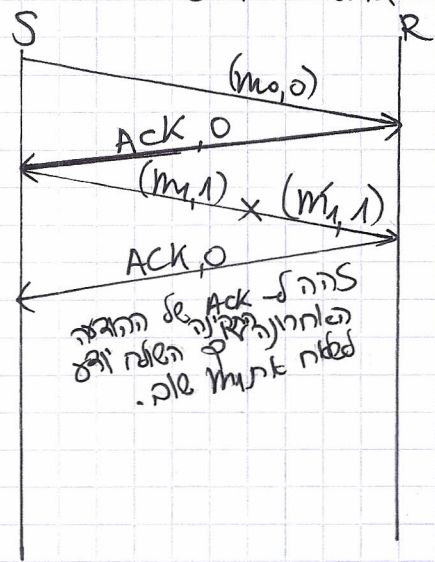 S
R
(m₀,0)
ACK,0
(m₁,1) × (m₁',1)
ACK,0
זהה ל- ACK של ההודעה
האחרונה השולח יודע
לשלוח את m₁ שוב.